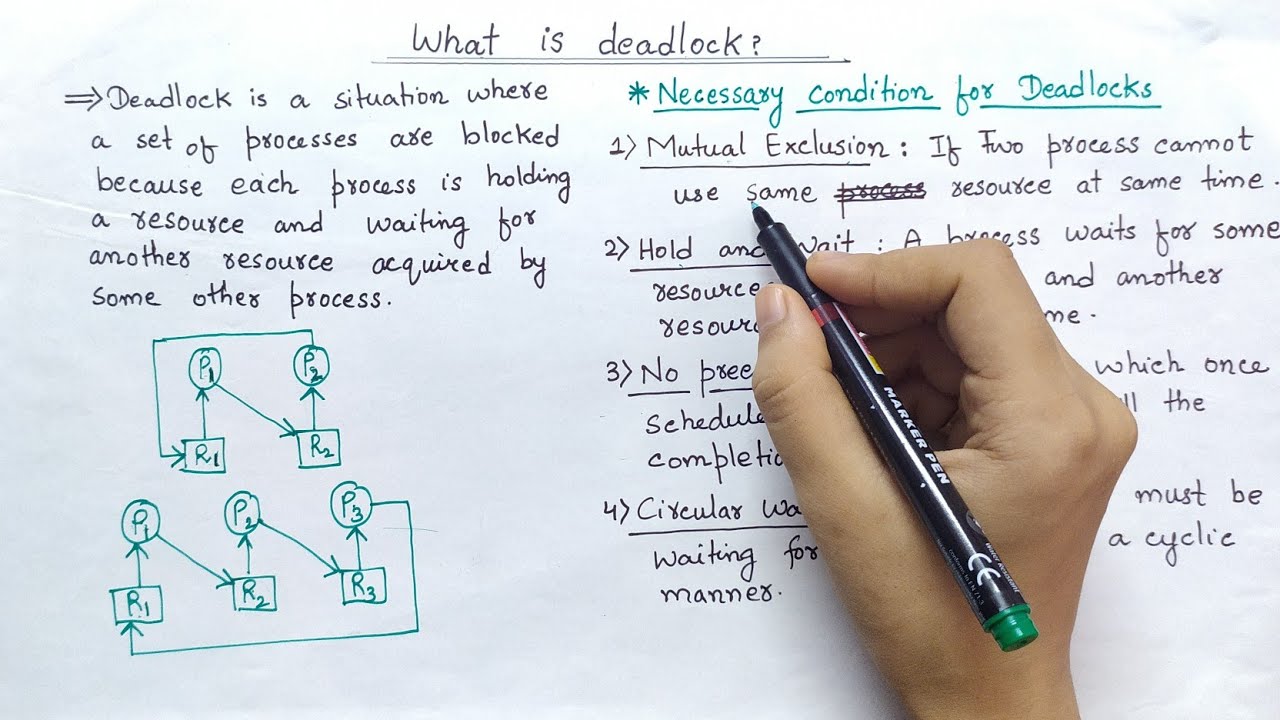 What is deadlock?
⇒ Deadlock is a situation where
a set of processes are blocked
because each process is holding
a resource and waiting for
another resource acquired by
some other process.
P1 P2
R1 R2
P1 P2 P3
R1 R2 R3
* Necessary condition for Deadlocks
1) Mutual Exclusion : If Two process cannot
use same process resource at same time.
2) Hold and wait : A process waits for some
resource and another
me.
3) No which once
the
4) Circular must be
waiting for a cyclic
manner.
MARKER PEN
CE